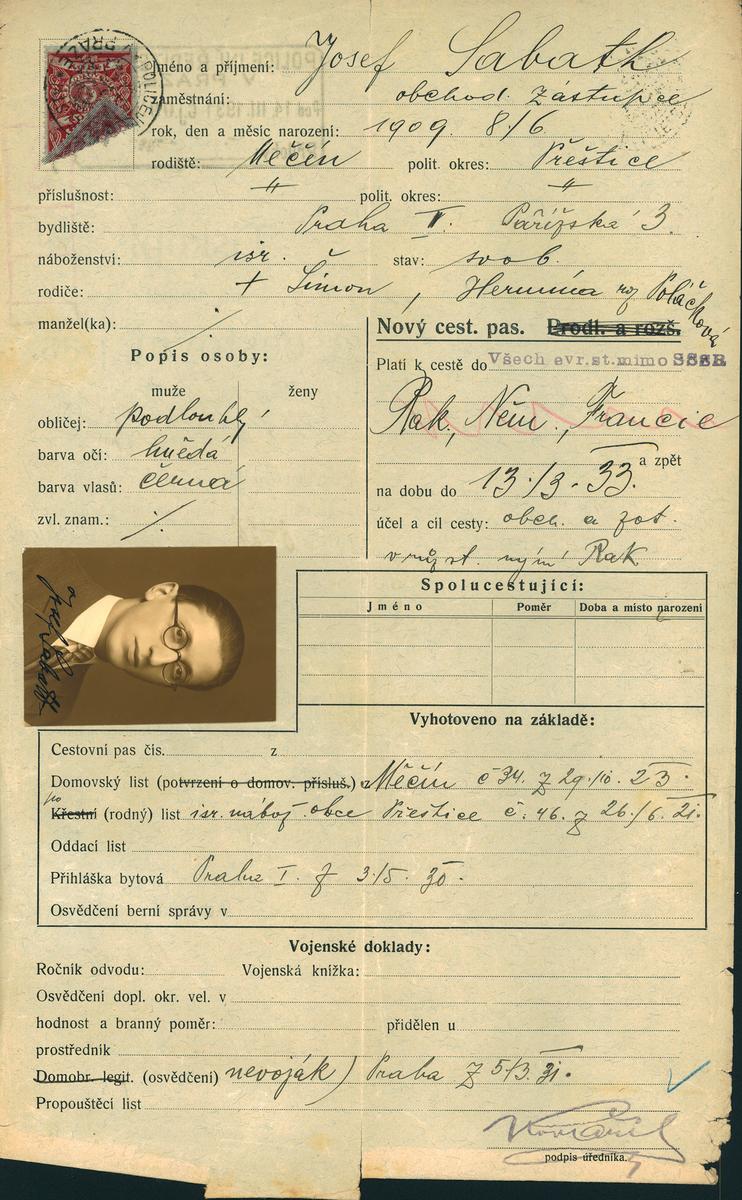 Jméno a příjmení: Josef Sabath
zaměstnání: obchod. zástupce
rok, den a měsíc narození: 1909 8/6
rodiště: Měčín polit. okres: Přeštice
příslušnost: " polit. okres: "
bydliště: Praha Pařížská 3.
náboženství: isr. stav: svob.
rodiče: + Šimon, Hermína roz Poláčková
manžel(ka): ⁒
Nový cest. pas. Prodl. a rozš.
Popis osoby:
muže ženy
obličej: podlouhlý
barva očí: hnědá
barva vlasů: černá
zvl. znam.: ⁒
Platí k cestě do Všech evr.st.mimo SSSR
Rak, Něm., Francie
a zpět
na dobu do 13/3.33.
účel a cíl cesty: obch. a zot.
Rak
Josef Sabath
Spolucestující:
Jméno Poměr Doba a místo narození
Vyhotoveno na základě:
Cestovní pas čís. z
Domovský list (potvrzení o domov. přísluš.) z Měčín č 34. z 29./10. 23.
Křestní (rodný) list isr. nábož. obce Přeštice č. 46. z 26./6. 21.
Oddací list
Přihláška bytová Praha I. z 3/5. 30.
Osvědčení berní správy v
Vojenské doklady:
Ročník odvodu: Vojenská knížka:
Osvědčení dopl. okr. vel. v
hodnost a branný poměr: přidělen u
prostředník
Domobr. legit. (osvědčení) nevoják) Praha z 5/3. 31.
Propouštěcí list
podpis úředníka.